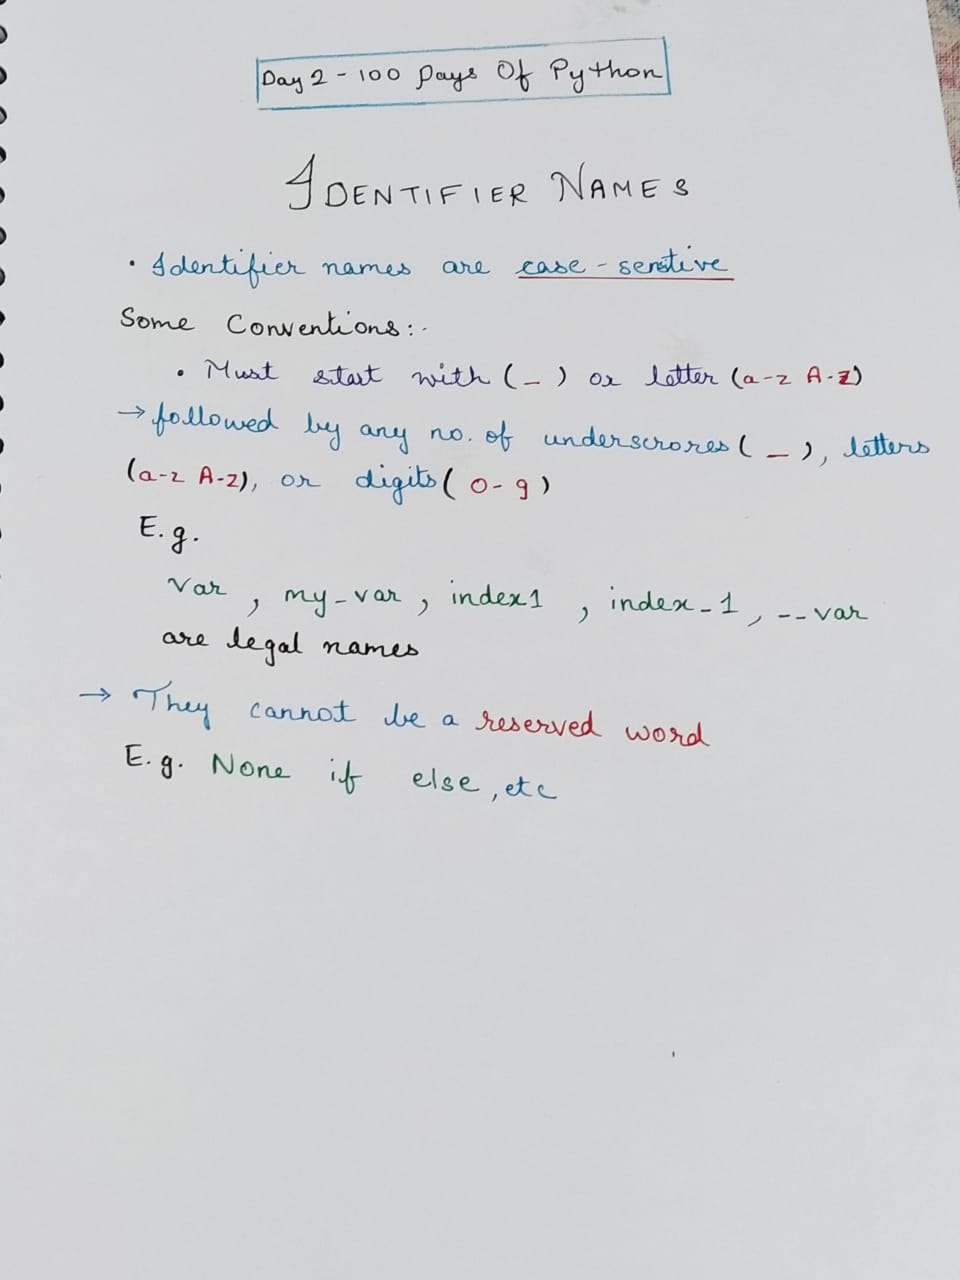 Day 2 - 100 Days Of Python
IDENTIFIER NAMES
• Identifier names are case-senstive
Some Conventions:-
• Must start with (_) or letter (a-z A-Z)
→ followed by any no. of underscrores (_), letters
(a-z A-Z), or digits (0-9)
E.g.
var, my_var, index1, index_1, __var
are legal names
→ They cannot be a reserved word
E.g. None if else, etc